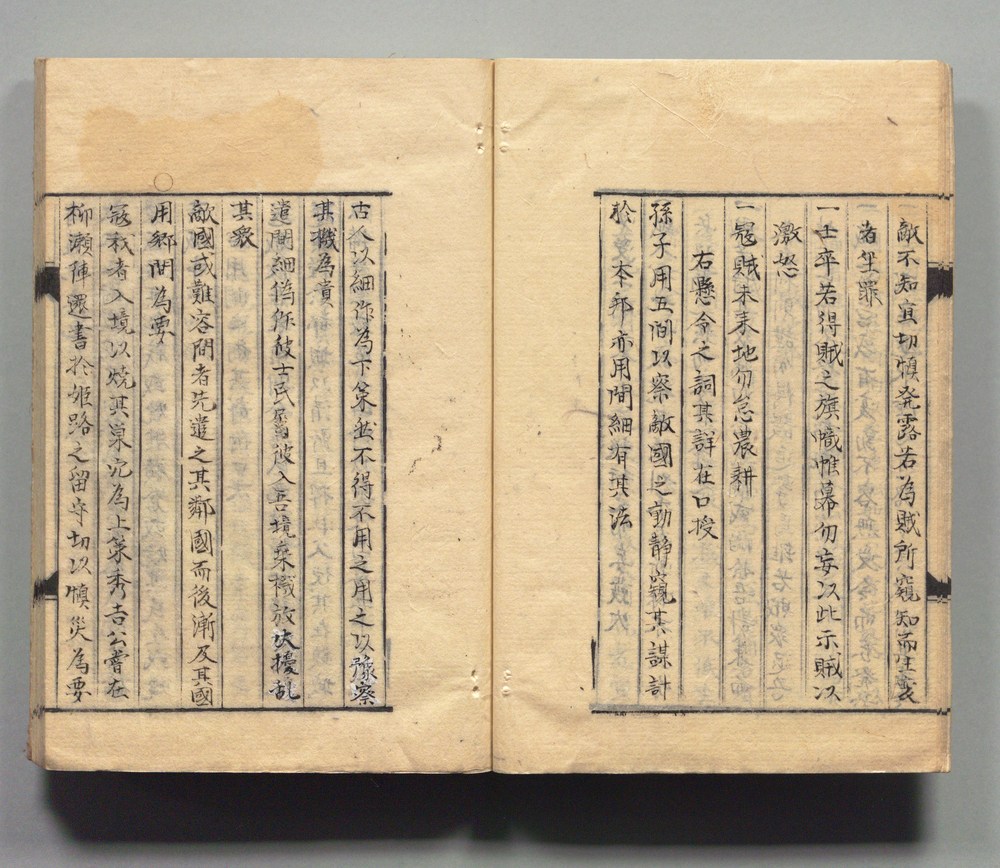 敵不知宜切慎発露若為賊所窺知而生変
者坐罪
一士卒若得賊之旗幟帷幕勿妄以此示賊以
激怒
一寇賊未来地勿怠農耕
右懸令之詞其詳在口授
孫子用五間以察敵國之動静窺其謀計
於本邦亦用間細有其法
古於以細作為下策並不得不用之用之以豫察
其機為貴
遣間細偽作彼士民 彼入吾境乗機放火擾乱
其衆
敵國或難容間者先遣之其鄰國而後漸及其國
用郷間為要
寇我者入境以焼其巣穴為上策秀吉公嘗在
柳瀬陣遺書於姫路之留守切以慎災為要